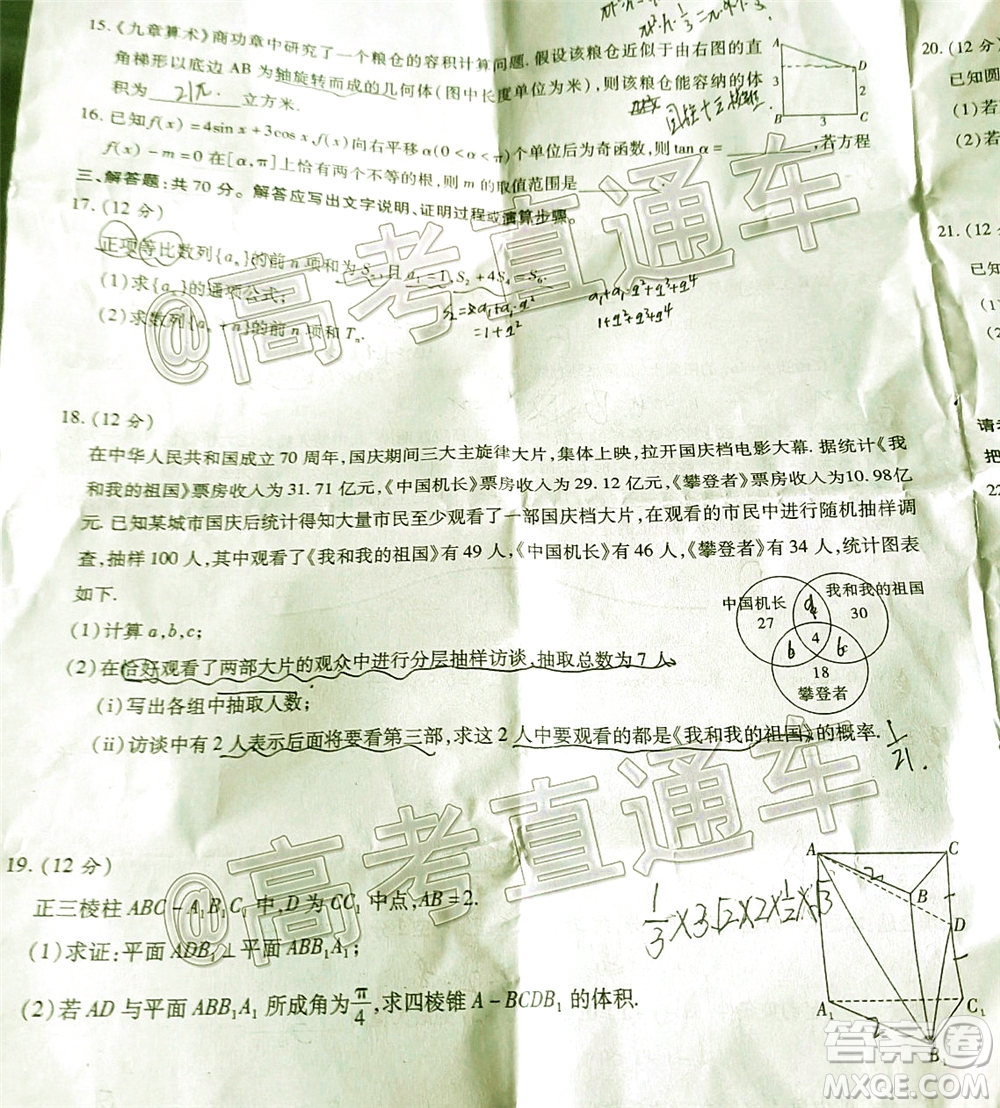 15.《九章算术》商功章中研究了一个粮仓的容积计算问题. 假设该粮仓近似于由右图的直
角梯形以底边 AB 为轴旋转而成的几何体(图中长度单位为米), 则该粮仓能容纳的体
积为 21π 立方米.
A
D
3
2
B
3
C
16. 已知f(x)=4sin x+3cos x,f(x)向右平移 α(0<α<π)个单位后为奇函数,则 tan α=____,若方程
f(x)-m=0 在[α,π]上恰有两个不等的根,则 m 的取值范围是____.
三、解答题:共 70 分。解答应写出文字说明、证明过程或演算步骤。
17. (12 分)
正项等比数列{aₙ}的前 n 项和为 Sₙ,且 a₁=1,S₂+4S₄=S₆.
(1)求{aₙ}的通项公式;
(2)求数列{aₙ+n}的前 n 项和 Tₙ.
=1+q²
1+q²+q³+q⁴
18. (12 分)
在中华人民共和国成立 70 周年,国庆期间三大主旋律大片,集体上映,拉开国庆档电影大幕. 据统计《我
和我的祖国》票房收入为 31.71 亿元,《中国机长》票房收入为 29.12 亿元,《攀登者》票房收入为10.98亿
元. 已知某城市国庆后统计得知大量市民至少观看了一部国庆档大片,在观看的市民中进行随机抽样调
查,抽样 100 人,其中观看了《我和我的祖国》有 49 人,《中国机长》有 46 人,《攀登者》有 34 人,统计图表
如下.
(1)计算 a,b,c;
中国机长
27
我和我的祖国
30
4
b
18
攀登者
(2)在恰好观看了两部大片的观众中进行分层抽样访谈,抽取总数为 7 人
(i)写出各组中抽取人数;
(ii)访谈中有 2 人表示后面将要看第三部,求这 2 人中要观看的都是《我和我的祖国》的概率.
1/21.
19. (12 分)
正三棱柱 ABC-A₁B₁C₁ 中,D 为 CC₁ 中点,AB=2.
(1)求证:平面 ADB₁⊥平面 ABB₁A₁;
(2)若 AD 与平面 ABB₁A₁ 所成角为π/4,求四棱锥 A-BCDB₁ 的体积.
1/3×3√2×2×1/2×√3
A
C
B
D
A₁
C₁
B₁
20. (12 分)
已知圆
(1)若
(2)若
21. (12
已知
(1)
(2)
请考
把
22
@高考直通车
@高考直通车
答案圈
MXQE.COM